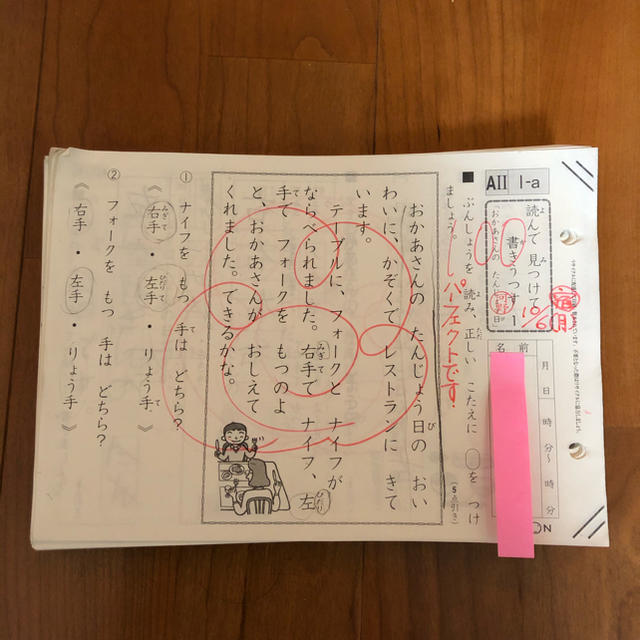 AII 1-a
読んで見つけて
書きうつす 1
おかあさんの たんじょう日
宿
10/6 月
名前
月 日 時 分〜 時 分
■ ぶんしょうを 読み、正しい こたえに ○を つけ
ましょう。
(5点引き)
パーフェクトです!
おかあさんの たんじょう日の おい
わいに、かぞくで レストランに きて
います。
テーブルに、フォークと ナイフが
ならべられました。右手で ナイフ、左
手で フォークを もつのよ
と、おかあさんが おしえて
くれました。できるかな。
① ナイフを もつ 手は どちら?
《 右手 ・ 左手 ・ りょう手 》
② フォークを もつ 手は どちら?
《 右手 ・ 左手 ・ りょう手 》